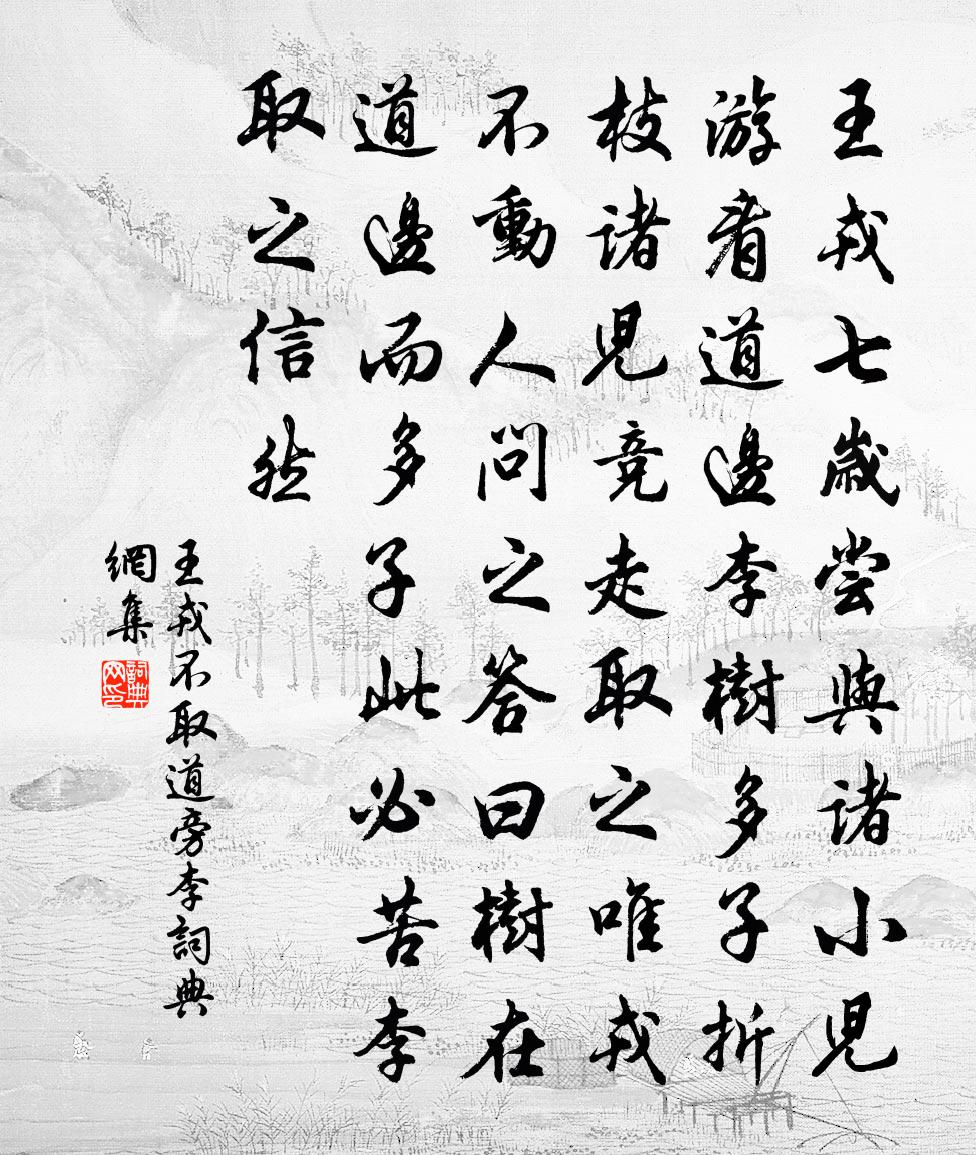 王戎七歲嘗與諸小児
游看道邊李樹多子折
枝諸児競走取之唯戎
不動人問之答曰樹在
道邊而多子此必苦李
取之信然
王戎不取道旁李詞典
網集
詞典
网印